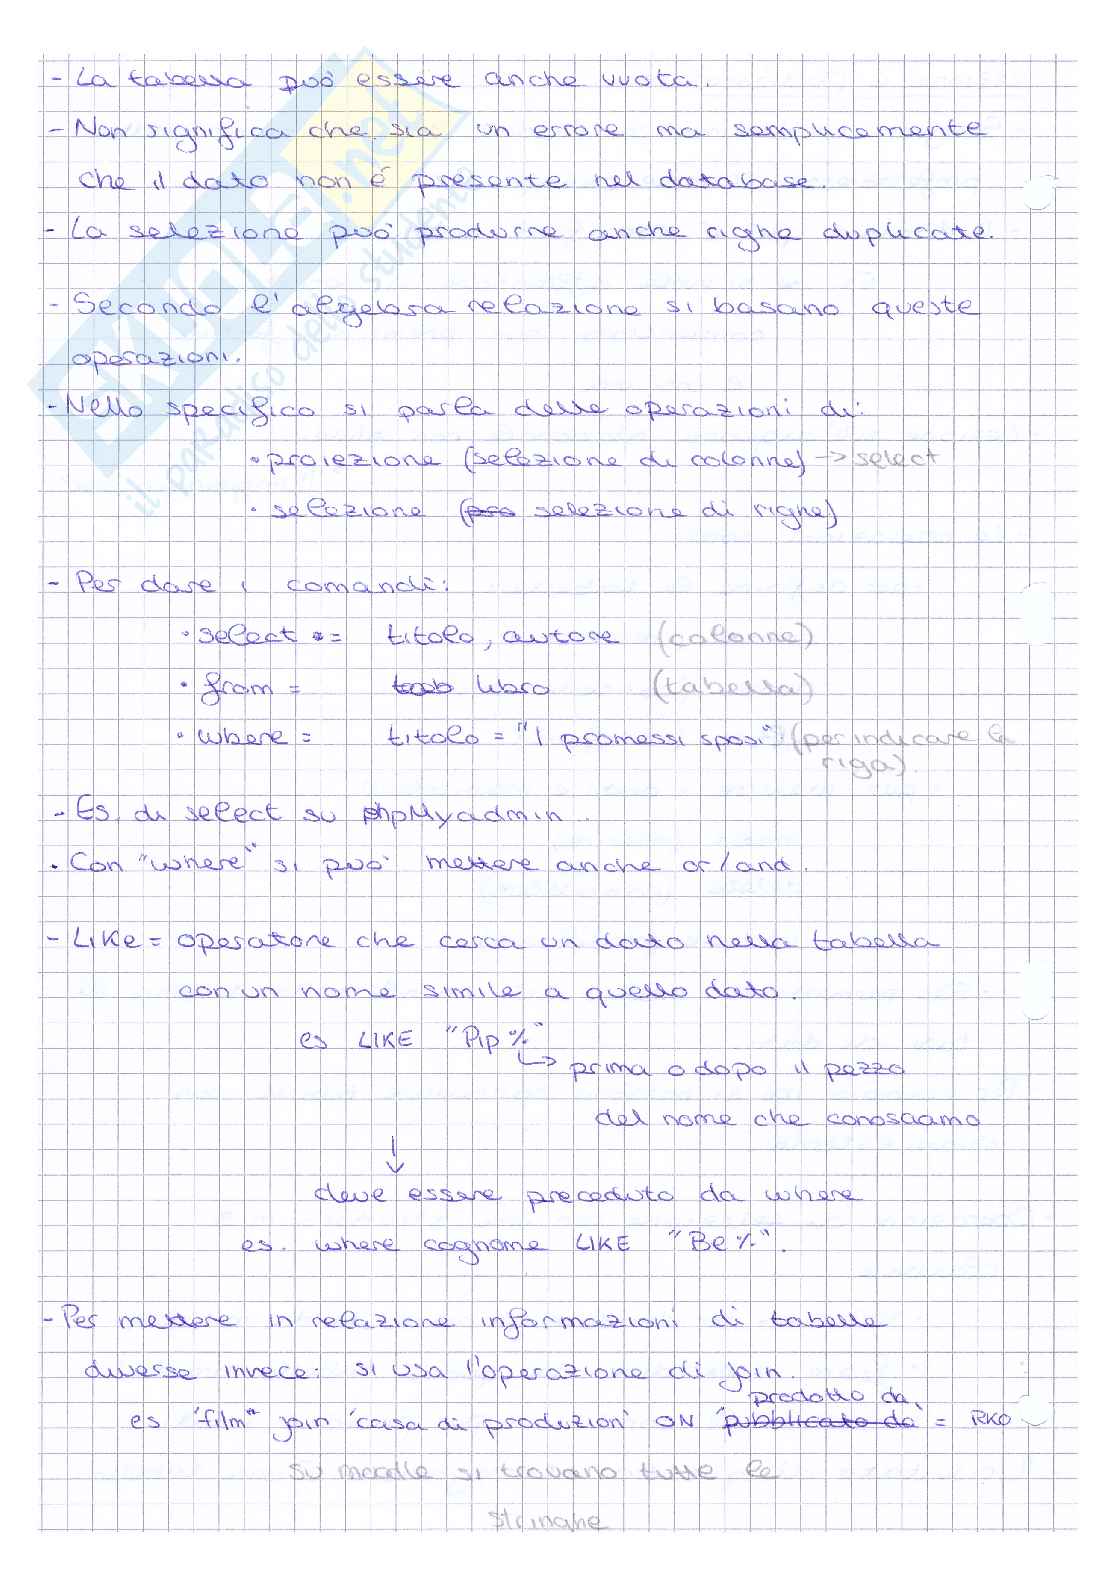 - La tabella può essere anche vuota.
- Non significa che sia un errore ma semplicemente
che il dato non è presente nel database.
- La selezione può produrre anche righe duplicate.
- Secondo l'algebra relazione si basano queste
operazioni.
- Nello specifico si parla delle operazioni di:
• proiezione (selezione di colonne) -> select
• selezione (pro selezione di righe)
- Per dare i comandi:
• select = titolo, autore (colonne)
• from = libro (tabella)
• where = titolo = "I promessi sposi" (per indicare la
riga).
- Es. di select su phpMyadmin.
• Con "where" si può mettere anche or/and.
- Like = operatore che cerca un dato nella tabella
con un nome simile a quello dato.
es LIKE "Pip%"
prima o dopo il pezzo
del nome che conosciamo
deve essere preceduto da where
es. where cognome LIKE "Be%".
- Per mettere in relazione informazioni di tabelle
diverse invece: si usa l'operazione di join.
prodotto da
es "film" join 'casa di produzion' ON pubblicato da = RKO
su moodle si trovano tutte le
stringhe
SKUOLA.net
il paradiso dello studente